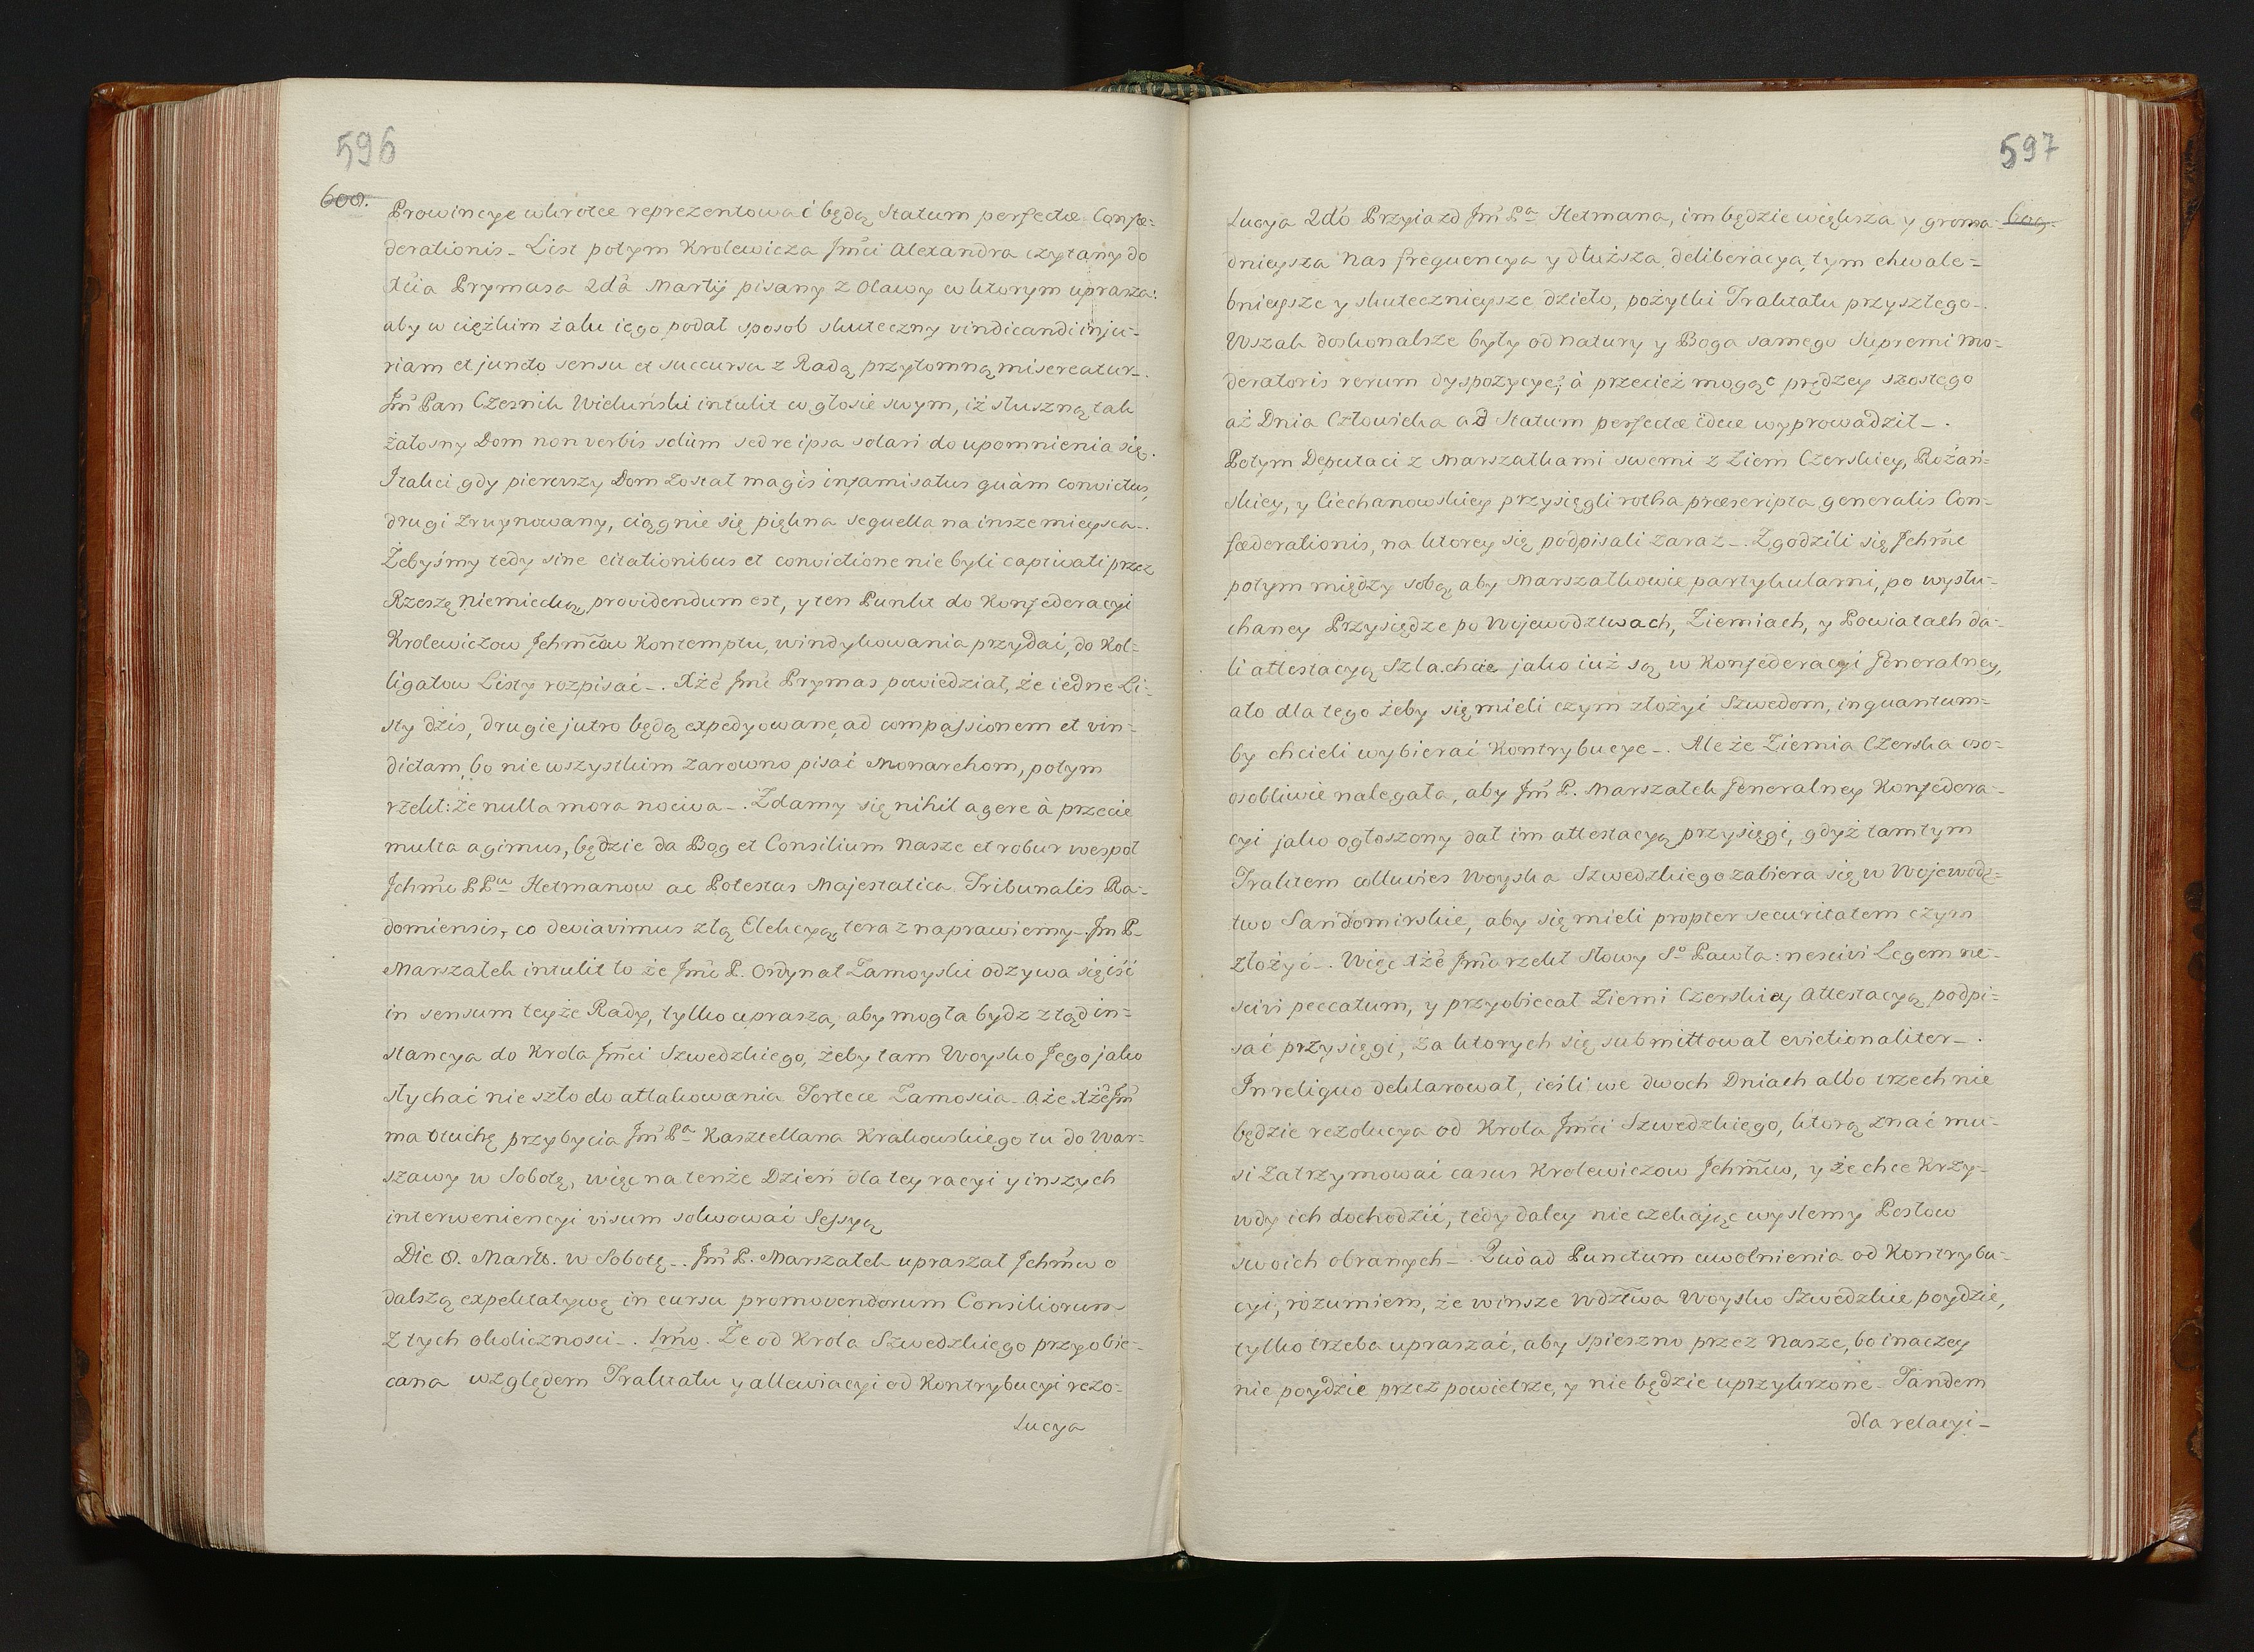 596
600.
Prowincye wkrotce reprezentować będą Statum perfectæ Confœ=
derationis_ List potym Krolewicza Jm̃ci Alexandra czytany do
Xcia Prymasa 2da Martij pisany z Olawy w ktorym uprasza:
aby w ciężkim żalu iego podał sposob skuteczny vindicandi inju=
riam et juncto sensu et succursu z Radą przytomną misereatur_.
Jm̃ Pan Czesnik Wieluński intulit w głosie swym, iż słuszną tak
żałosny Dom non verbis solùm sed re ipsa solari do upomnienia się.
Italici gdy pierwszy Dom został magis infamisatus quàm convictus,
drugi zruynowany, ciągnie się piękna sequella na insze mieysca_.
Żebyśmy tedy sine citationibus et convictione nie byli captivati przez
Rzeszę Niemiecką, providendum est, y ten Punkt do Konfederacyi
Krolewiczow Jchm̃ciow Kontemptu, windykowania przydać, do Kol=
ligatow Listy rozpisać_. Xżė Jm̃ć Prymas powiedział, że iedne Li=
sty dzis, drugie jutro będą expedyowane, ad compassionem et vin=
dictam, bo nie wszystkim zarowno pisać Monarchom, potym
rzekł: że nulla mora nociva_. Zdamy się nihil agere à przecie
multa agimus, będzie da Bog et Consilium nasze et robur wespoł
Jchm̃c PPw Hetmanow ac Potestas Majestatica Tribunalis Ra=
domiensis, co deviavimus złą Elekcyą, teraz naprawiemy_. Jm P.
Marszałek intulit to że Jm̃c P. Ordynat Zamoyski odzywa się iść
in sensum teyże Rady, tylko uprasza, aby mogła bydz ztąd in=
stancya do Krola Jm̃ci Szwedzkiego, żeby tam Woysko Jego jako
słychać nie szło do attakowania Fortece Zamoscia_ Aże Xże Jm̃
ma otuchę przybycia Jm̃ Pa Kasztellana Krakowskiego tu do War=
szawy w Sobotę, więc na tenże Dzień dla tey racyi y inszych
interweniencyi visum solwować Sessyą
Die 8. Martÿ. w Sobotę_. Jm̃ P. Marszałek upraszał Jchm̃ciow o
dalszą expektatywę in cursu promovendorum Consiliorum
z tych okoliczności_. 1mo. Że od Krola Szwedzkiego przyobie=
cana względem Traktatu y allewiacyi od Kontrybucyi rezo=
Lucya
597
609.
Lucya 2do Przyiazd Jm̃ Pa Hetmana, im będzie większa y groma=
dnieysza nas frequencya y dłuższa deliberacya, tym chwale=
bnieysze y skutecznieysze dzieło, pożytki Traktatu przyszłego_.
Wszak doskonalsze były od natury y Boga samego Supremi Mo=
deratoris rerum dyspozycye, à przecież mogąc prędzey szostego
aż Dnia Człowieka ad Statum perfectæ ideæ wyprowadził_.
Potym Deputaci z Marszałkami swemi z Ziem Czerskiey, Rożań=
skiey, y Ciechanowskiey przysięgli rotha præscripta generalis Con=
fœderationis, na ktorey się podpisali zaraz_. Zgodzili się Jchm̃c
potym między sobą, aby Marszałkowie partykularni, po wysłu=
chaney Przysiędze po Wojewodztwach, Ziemiach, y Powiatach da=
li attestacyą Szlachcie jako iuż są w Konfederacyi Generalney,
a to dla tego żeby się mieli czym złożyć Szwedom, inquantum=
by chcieli wybierać Kontrybucye_. Ale że Ziemia Czerska oso=
osobliwie nalegała, aby Jm̃ P. Marszałek Generalney Konfedera=
cyi jako ogłoszony dał im attestacyą przysięgi, gdyż tamtym
Traktem colluvies Woyska Szwedzkiego zabiera się w Wojewodz=
two Sandomirskie, aby się mieli propter securitatem czym
złożyć_. Więc Xże Jm̃c rzekł słowy So Pawła: nescivi Legem ne=
scivi peccatum, y przyobiecał Ziemi Czerskiey Attestacyą podpi=
sać przysięgi, za ktorych się submittował evictionaliter_.
In reliquo deklarował, ieśli we dwoch Dniach albo trzech nie
będzie rezolucya od Krola Jm̃ci Szwedzkiego, ktorą znać mu=
si zatrzymować casus Krolewiczow Jchm̃ciow, y że chce krzy=
wdy ich dochodzić, tedy daley nie czekając wyslemy Posłow
swoich obranych_. Quò ad Punctum uwolnienia od Kontrybu=
cyi, rozumiem, że w insze Wdztwa Woysko Szwedzkie poydzie,
tylko trzeba upraszać, aby spieszno przez nasze, bo inaczey
nie poydzie przez powietrze, y nie będzie uprzykrzone_ Tandem
dla relacyi_